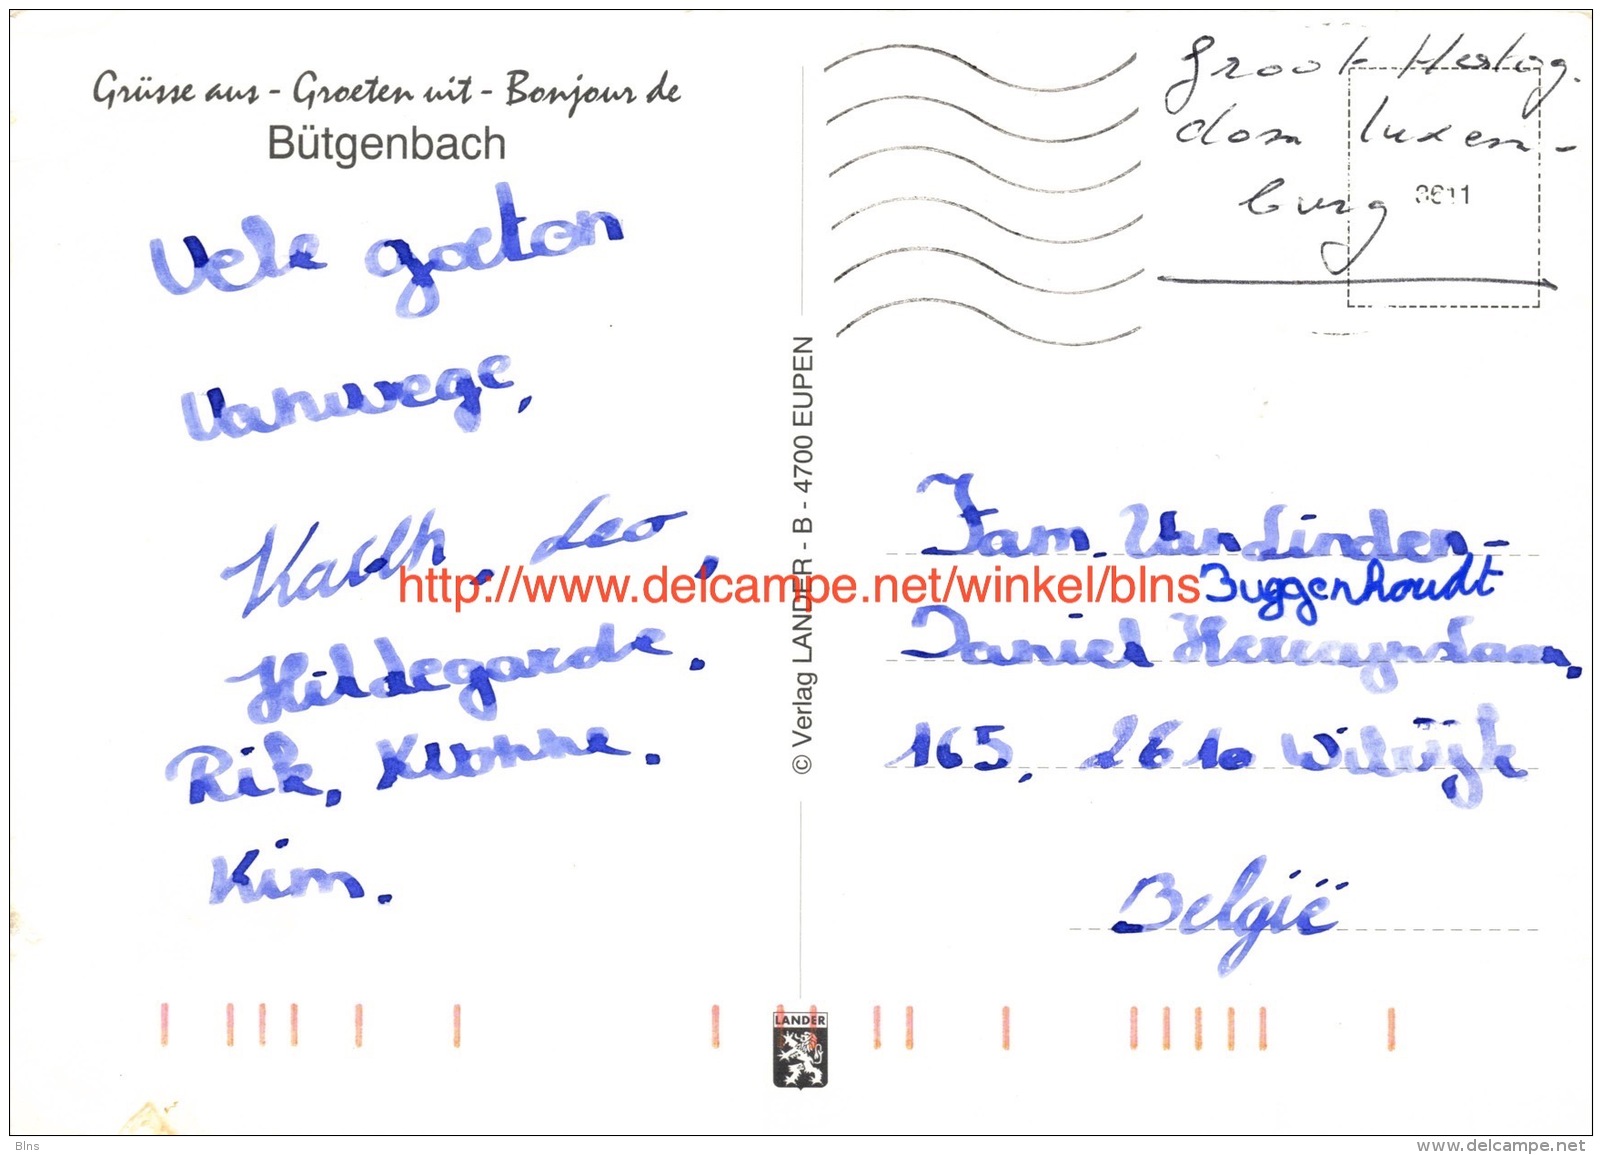 Grüsse aus - Groeten uit - Bonjour de
Bütgenbach
Vele goeten
Vanwege,
Leo,
Hildegarde,
Rik,
Kim.
© Verlag LANDER - B - 4700 EUPEN
Groot-Hertog.
dom luxem-
burg
3611
Fam. Van Linden-
Buggenhoudt
Daniel Herreynslaan,
165, 2610 Wilrijk
Belgïë
LANDER
http://www.delcampe.net/winkel/blns
Blns
www.delcampe.net